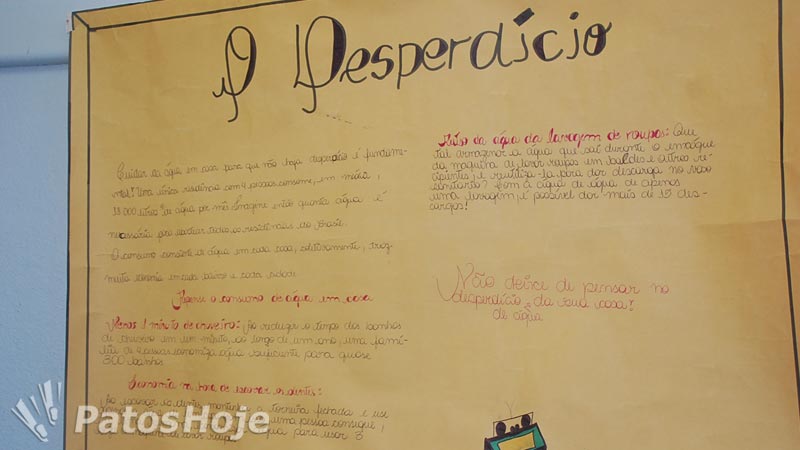 O Desperdício
Cuidar da água em casa para que não haja desperdício é fundame-
ntal! Uma única residência com 4 pessoas consome, em média,
18 000 litros de água por mês. Imagine então quanta água é
necessária pra abastecer todas as residências do Brasil.
O consumo consciente de água em sua casa, coletivamente, traz
muita economia em seu bairro e cada cidade
Repense o consumo de água em casa
Menos 1 minuto de chuveiro: Ao reduzir o tempo dos banhos
de chuveiro em um minuto, ao longo de um ano, uma famí-
lia de 4 pessoas economiza água suficiente para quase
300 banhos.
Economia na hora de escovar os dentes:
Ao escovar os dentes mantenha a torneira fechada e use
uma pessoa consegue,
água para usar 3
Reúso da água da lavagem de roupas: Que
tal armazenar a água que sai durante o enxágue
da maquina de lavar roupas em baldes e outros re-
cipientes, e reutiliza-la para dar descarga no vaso
sanitário? Com a água de água de apenas
uma lavagem, é possível dar mais de 15 des-
cargas!
Não deixe de pensar no
desperdício da sua casa!
de água
PatosHoje